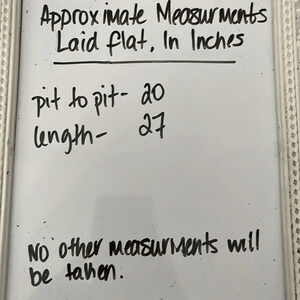 Approximate Measurments
Laid flat, In Inches
pit to pit- 20
length- 27
No other measurments will
be taken.